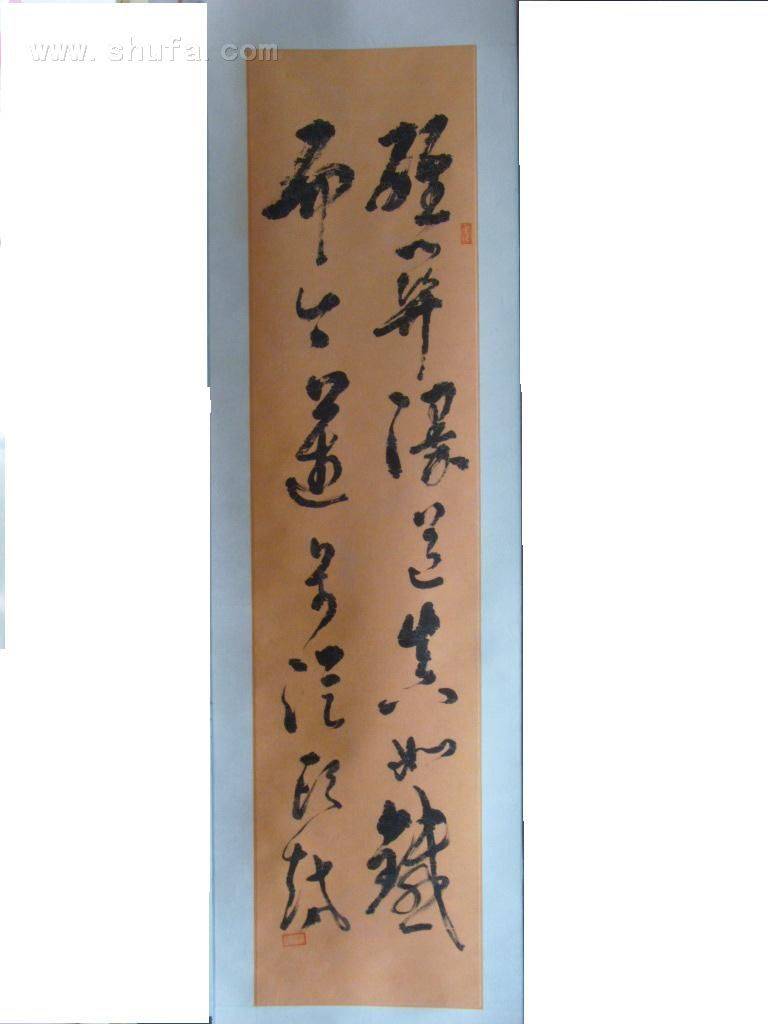 www.shufa.com
雄關漫道真如鐵
而今邁步從頭越